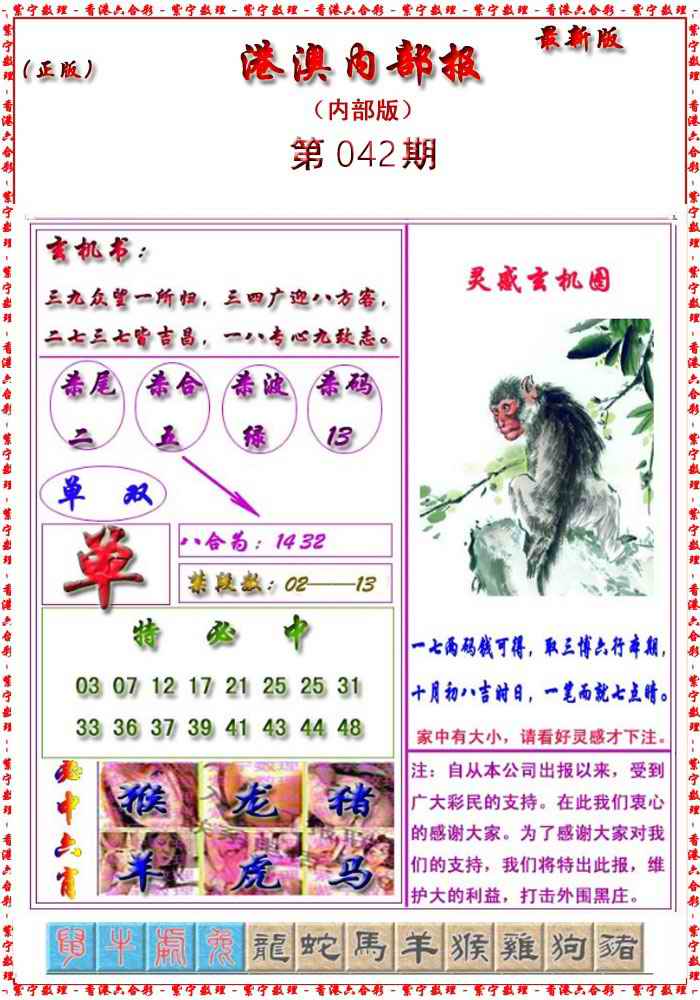 紫宁数理-香港六合彩-紫宁数理-香港六合彩-紫宁数理-香港六合彩-紫宁数理
最新版
（正版）
港澳内部报
（内部版）
第 042 期
玄机书：
三九众望一所归，三四广迎八方客，
二七三七皆吉昌，一八专心九致志。
禁尾
二
禁合
五
禁波
绿
禁码
13
单 双
单
八合为：14 32
禁段数：02——13
特 必 中
03 07 12 17 21 25 25 31
33 36 37 39 41 43 44 48
必中六肖
猴 龙 猪
羊 虎 马
灵感玄机图
一七两码钱可得，取三博六行本期，
十月初八吉时日，一笔而就七点睛。
家中有大小，请看好灵感才下注。
注：自从本公司出报以来，受到
广大彩民的支持。在此我们衷心
的感谢大家。为了感谢大家对我
们的支持，我们将特出此报，维
护大的利益，打击外围黑庄。
鼠 牛 虎 兔 龍 蛇 馬 羊 猴 雞 狗 豬